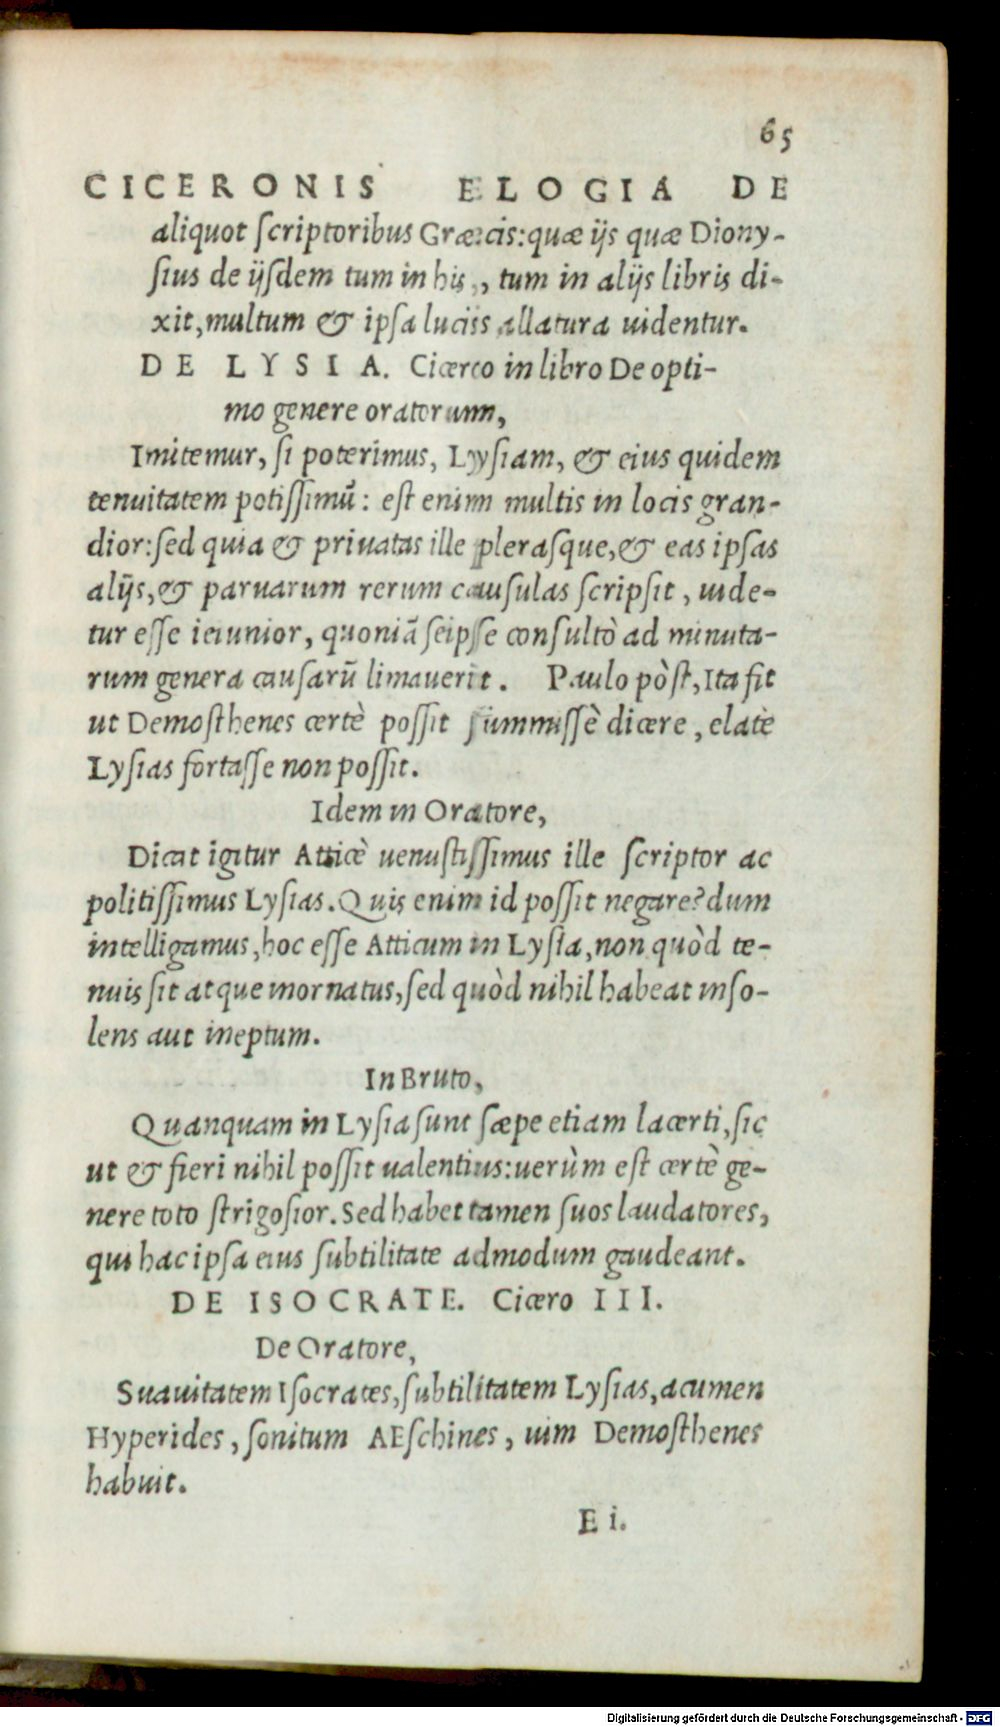 65
CICERONIS ELOGIA DE
aliquot ſcriptoribus Græcis: quæ ijs quæ Diony-
ſius de ijſdem tum in his, tum in alijs libris di-
xit, multum & ipſa lucis allatura uidentur.
DE LYSIA. Cicero in libro De opti-
mo genere oratorum,
Imitemur, ſi poterimus, Lyſiam, & eius quidem
tenuitatem potiſſimũ: eſt enim multis in locis gran-
dior: ſed quia & priuatas ille pleraſque, & eas ipſas
alijs, & paruarum rerum cauſulas ſcripſit, uide-
tur eſſe ieiunior, quoniã ſeipſe conſultò ad minuta-
rum genera cauſarũ limauerit. Paulo pòſt, Ita fit
ut Demoſthenes certè poſſit ſummiſſè dicere, elatè
Lyſias fortaſſe non poſſit.
Idem in Oratore,
Dicat igitur Atticè uenuſtiſſimus ille ſcriptor ac
politiſſimus Lyſias. Quis enim id poſſit negare? dum
intelligamus, hoc eſſe Atticum in Lyſia, non quòd te-
nuis ſit atque inornatus, ſed quòd nihil habeat inſo-
lens aut ineptum.
In Bruto,
Quanquam in Lyſia ſunt ſæpe etiam lacerti, ſic
ut & fieri nihil poſſit ualentius: uerùm eſt certè ge-
nere toto ſtrigoſior. Sed habet tamen ſuos laudatores,
qui hac ipſa eius ſubtilitate admodum gaudeant.
DE ISOCRATE. Cicero III.
De Oratore,
Suauitatem Iſocrates, ſubtilitatem Lyſias, acumen
Hyperides, ſonitum AEſchines, uim Demoſthenes
habuit.
E i.
Digitalisierung gefördert durch die Deutsche Forschungsgemeinschaft - DFG